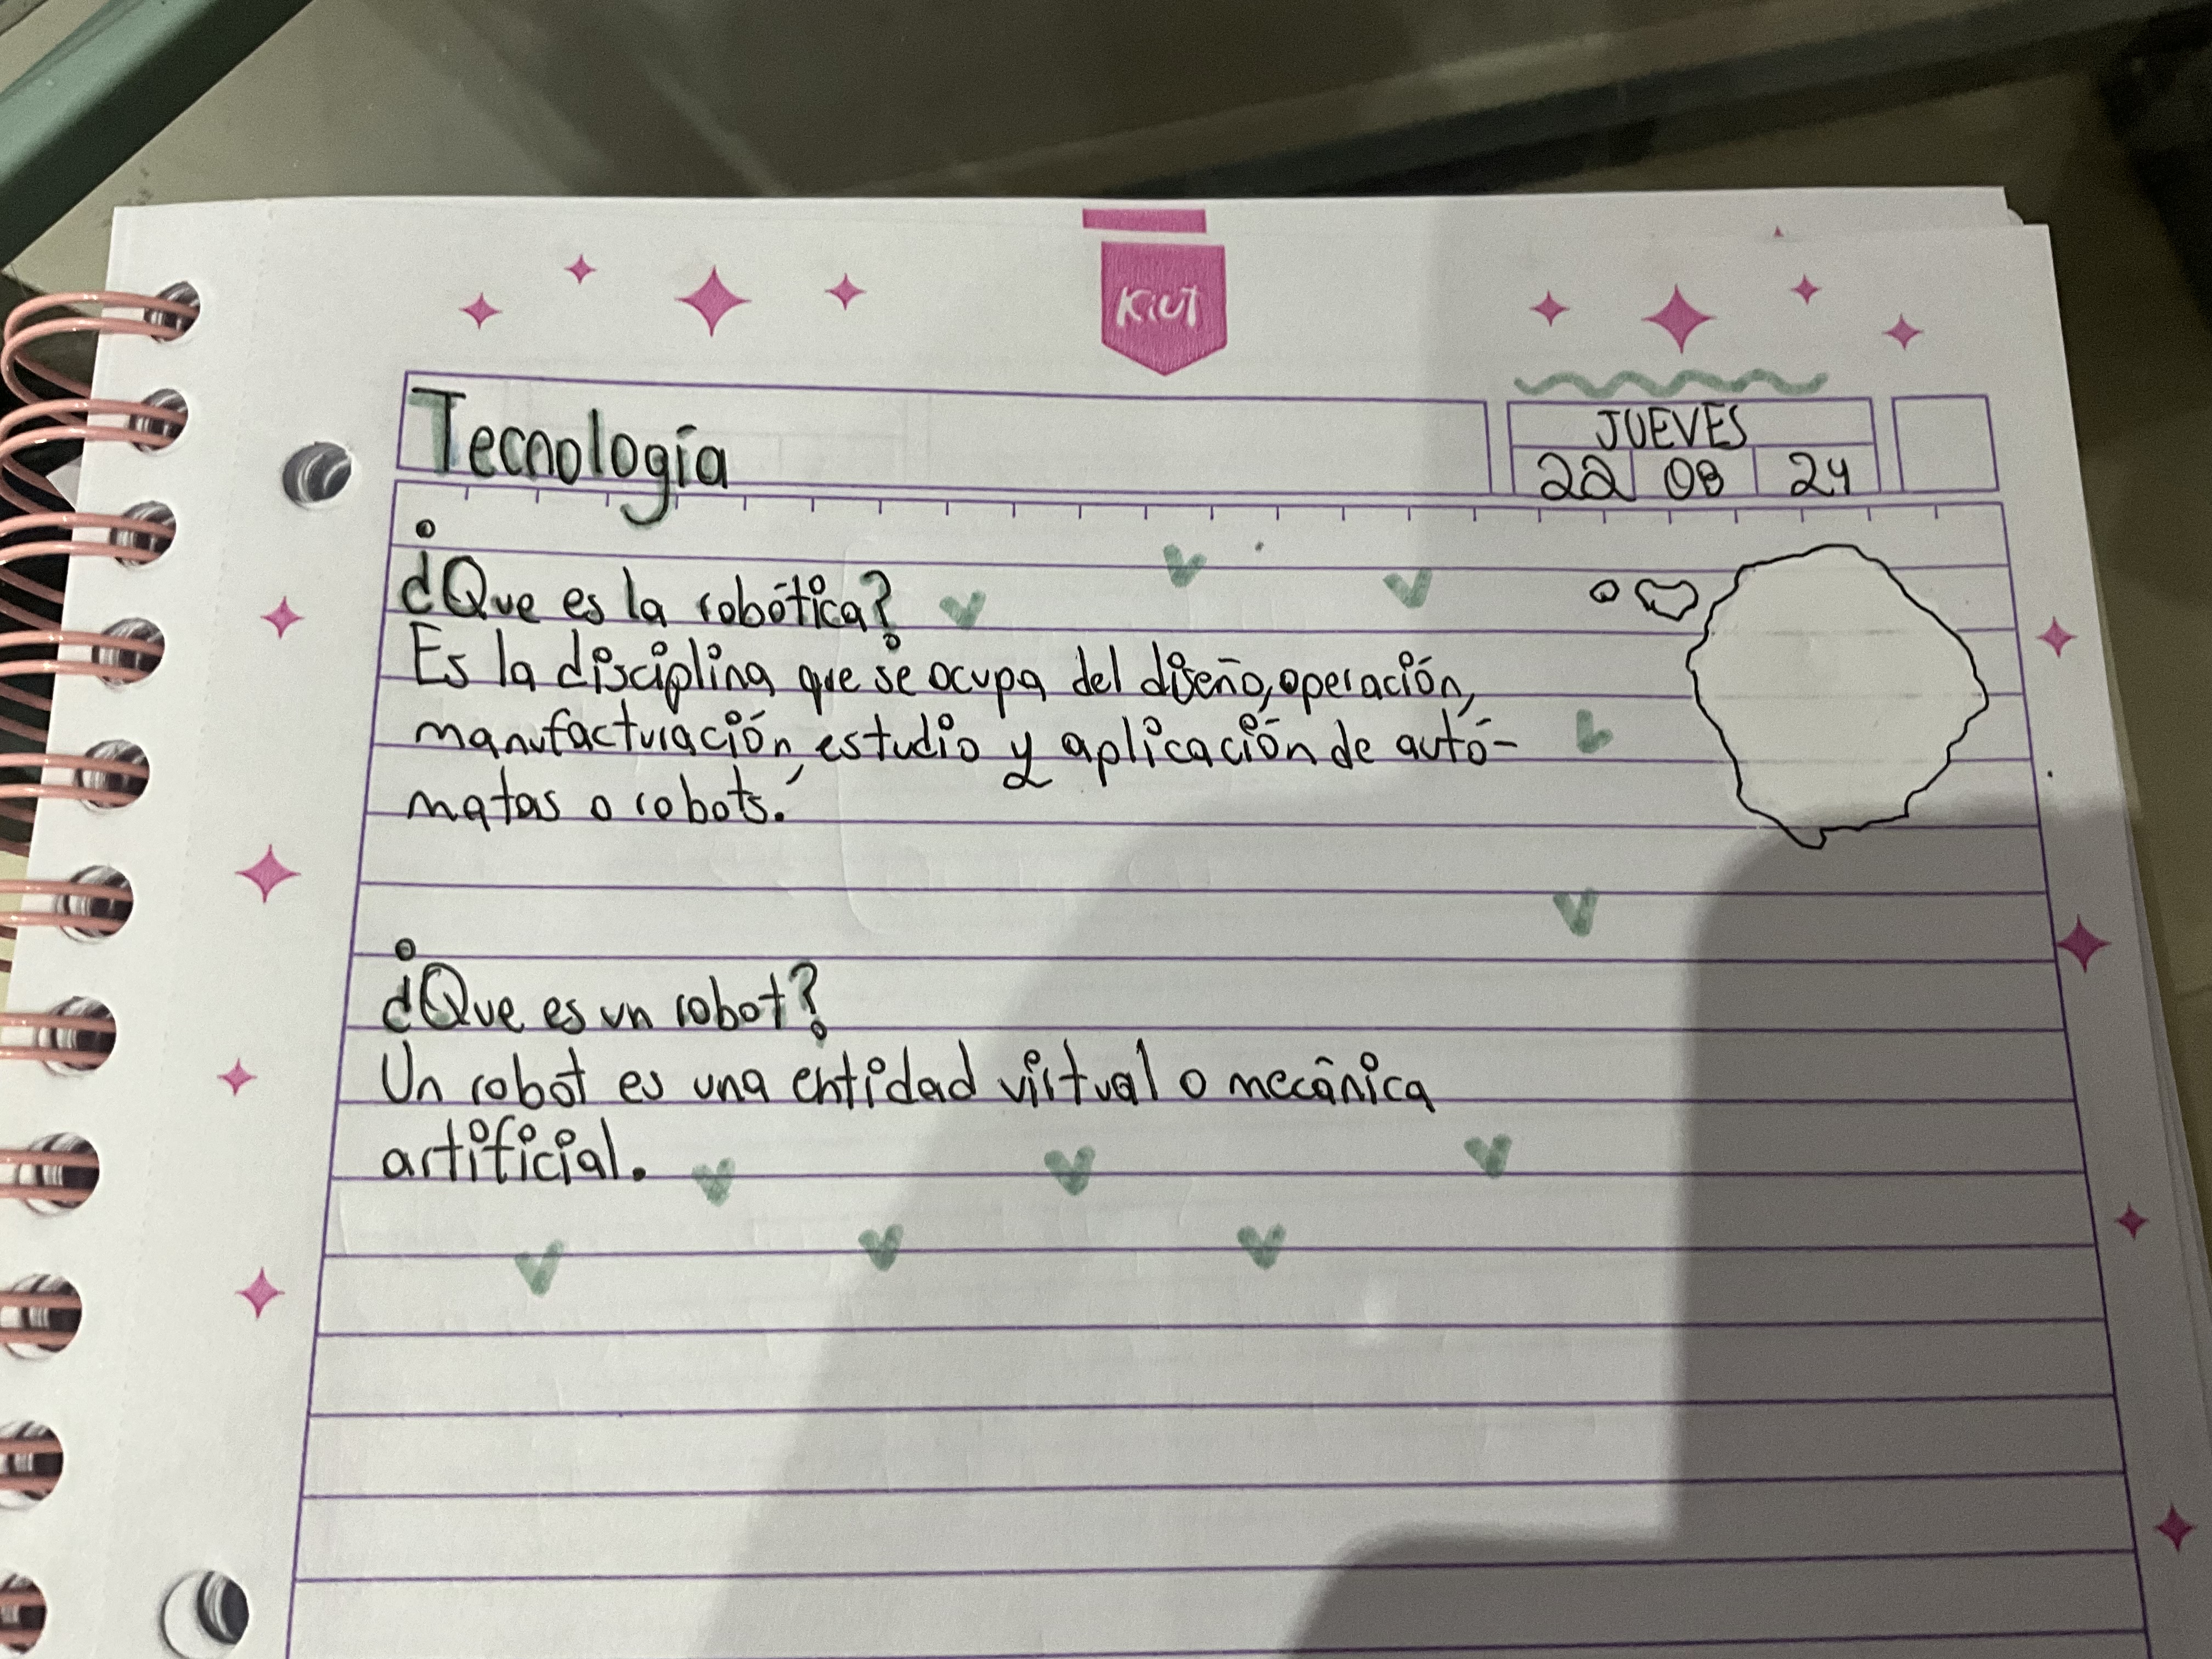 Kiut
Tecnología
JUEVES
22 08 24
¿Que es la robótica?
Es la disciplina que se ocupa del diseño, operación,
manufacturación, estudio y aplicación de autó-
matas o robots.
¿Que es un robot?
Un robot es una entidad virtual o mecánica
artificial.